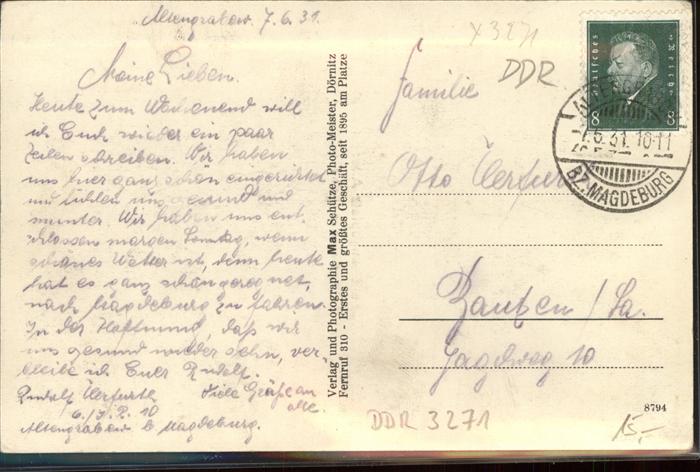 Altengrabow, 7.6.31.
Meine Lieben.
Heute zum Wochenend will
ich Euch wieder ein paar
Zeilen schreiben. Wir haben
uns hier ganz schön eingerichtet
und fühlen uns gesund und
munter. Wir haben uns ent-
schlossen morgen Sonntag, wenn
schönes Wetter ist, denn heute
hat es ganz schön geregnet,
nach Magdeburg zu fahren.
In der Hoffnung, daß wir
uns gesund wieder sehn, ver-
bleibe ich Euer Rudolf.
Rudolf Verfurth Viele Grüße an
alle
Altengrabow b. Magdeburg.
Verlag und Photographie Max Schütze, Photo-Meister, Dörnitz
Fernruf 310 - Erstes und größtes Geschäft, seit 1895 am Platze
X3271
DDR
Deutsches Reich
8 8
31.10-11
BZ. MAGDEBURG
Familie
Otto
Bautzen / Sa.
Jagdweg 10
8794
DDR 3271
15,-